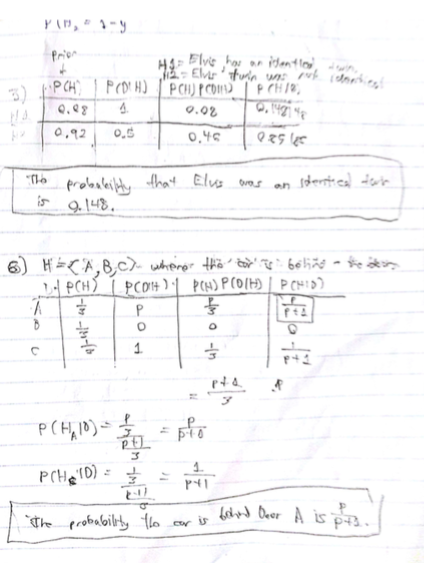 = 1 - y
Prior
H1 = Elvis has an identical twin
H2 = Elvis' twin was not identical
3) P(H) | P(D|H) | P(H) P(D|H) | P(H|D)
0.08 | 1 | 0.08 | 0.148148
0.92 | 0.5 | 0.46 | 0.85185
The probability that Elvis was an identical twin
is 0.148.
6) H = {A, B, C} where the car is behind the door
P(H) | P(D|H) | P(H) P(D|H) | P(H|D)
A 1/3 | P | P/3 | P/P+1
B 1/3 | 0 | 0 | 0
C 1/3 | 1 | 1/3 | 1/P+1
= P+1/3
P(H_A|D) = P/3 / P+1/3 = P/P+1
P(H_C|D) = 1/3 / P+1/3 = 1/P+1
The probability the car is behind Door A is P/P+1.